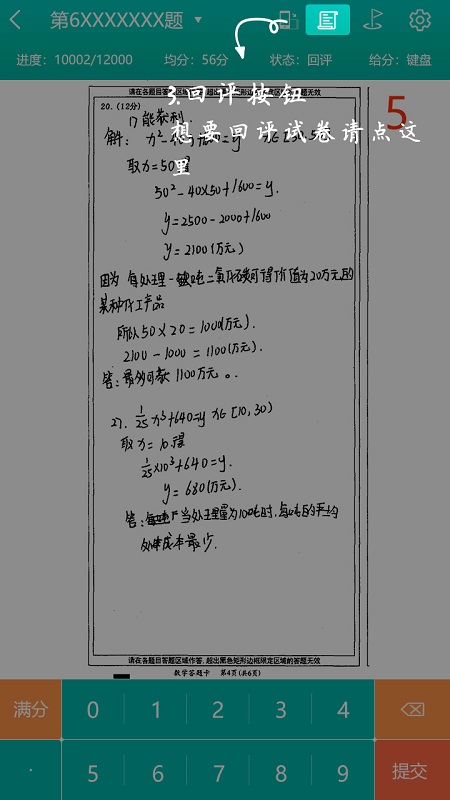 第6XXXXXXX题
进度：10002/12000
均分：56分
状态：回评
给分：键盘
请在各题目答题区域作答，超出黑色矩形边框限定区域的答题无效
3.回评按钮
想要回评试卷请点这里
5
20.（12分）
1) 能获利.
解：
取x=50得
50²-40×50+1600=y.
y=2500-2000+1600
y=2100(万元)
因为 每处理一吨二氧化碳可得价值为20万元的
某种化工产品
所以 50×20=1000(万元).
2100-1000=1100(万元).
答：最多可获 1100万元。
2). 1/25 x³+640=y x∈[10,30)
取x=10.得
1/25×10³+640=y.
y=680(万元).
答：当处理量为10吨时，每吨的平均
处理成本最少.
请在各题目答题区域作答，超出黑色矩形边框限定区域的答题无效
数学答题卡 第4页(共6页)
满分 0 1 2 3 4
· 5 6 7 8 9 提交